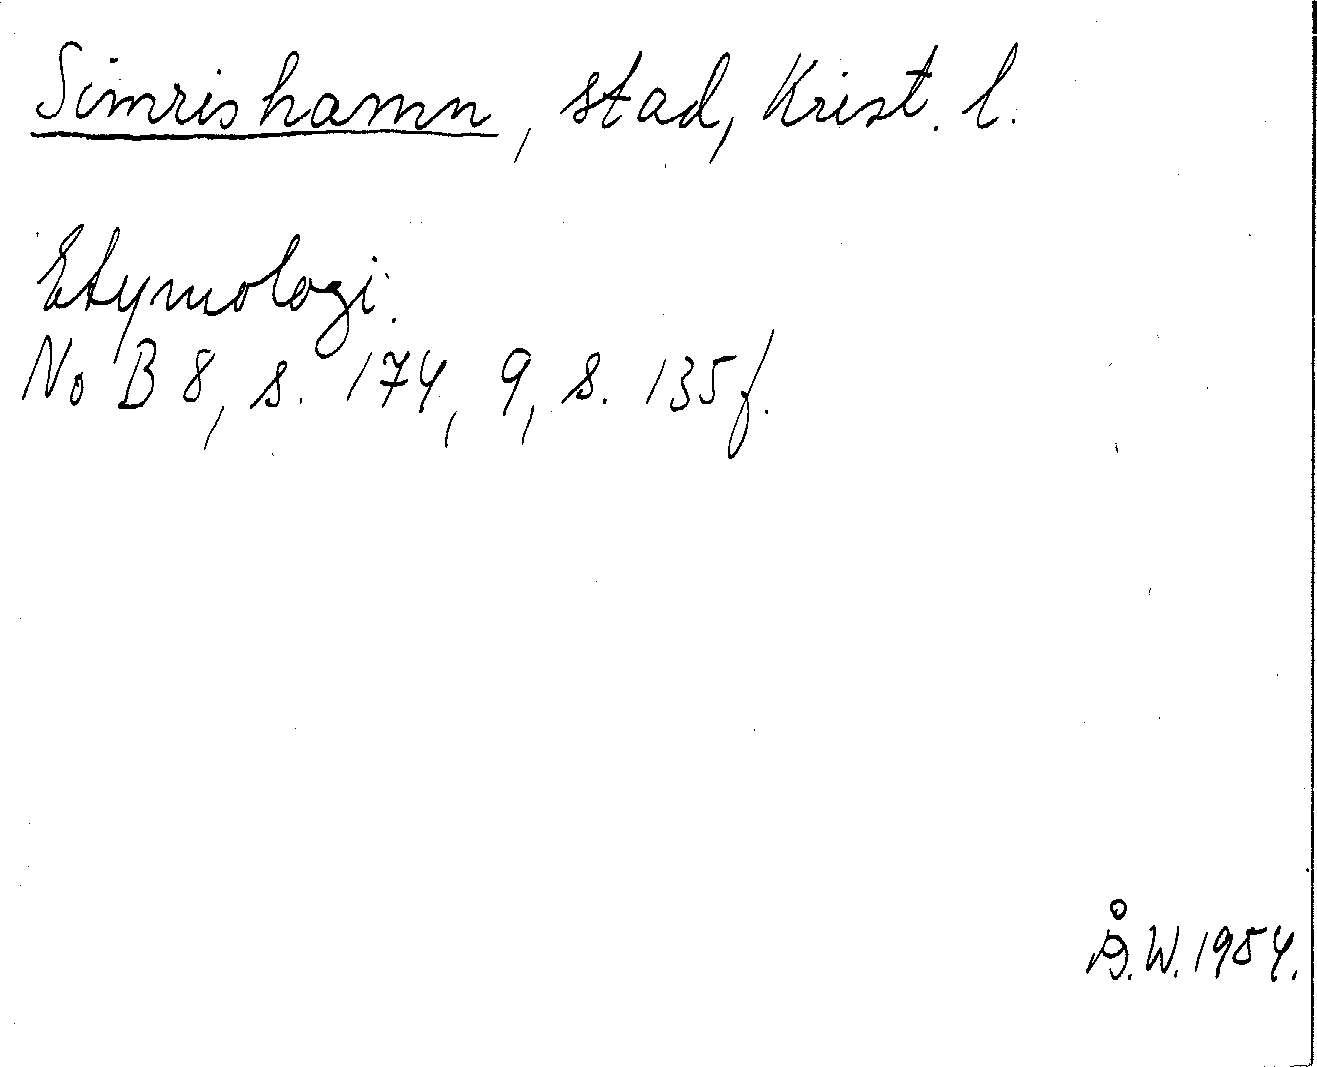 Simrishamn, stad, Krist. l.
Etymologi.
No B 8, s. 174, 9, s. 135 f.
Å.W. 1954.